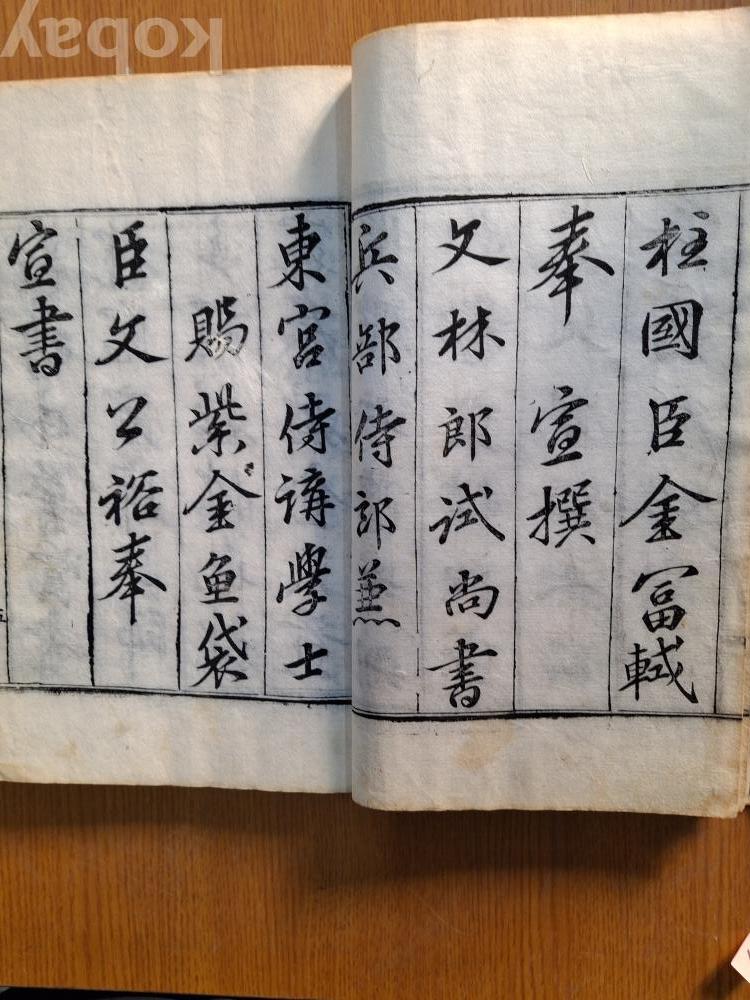 柱國臣金富軾
奉 宣撰
文林郎試尚書
兵部侍郎兼
東宮侍講學士
賜紫金魚袋
臣文公裕奉
宣書
五
kobay